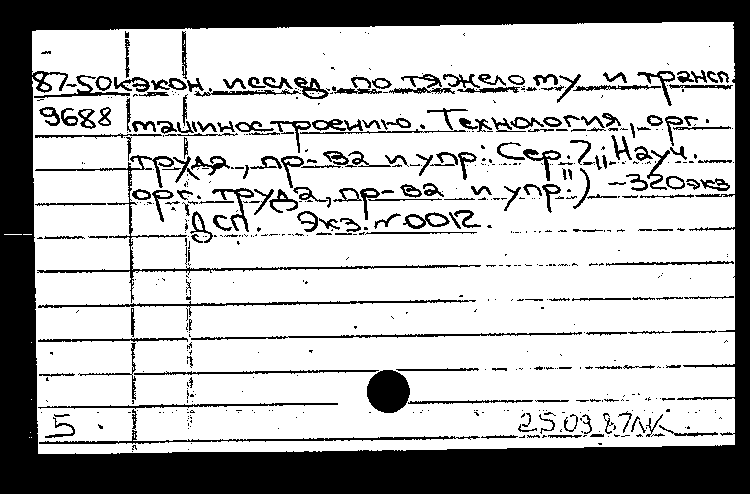 87-50к экон. исслед. по тяжелому и трансп.
9688 машиностроению. Технология, орг.
труда, пр-ва и упр.: Сер. 7; „Науч.
орг. труда, пр-ва и упр.") -320экз
ДСП. Экз. N 0012.
5. 25.09.87